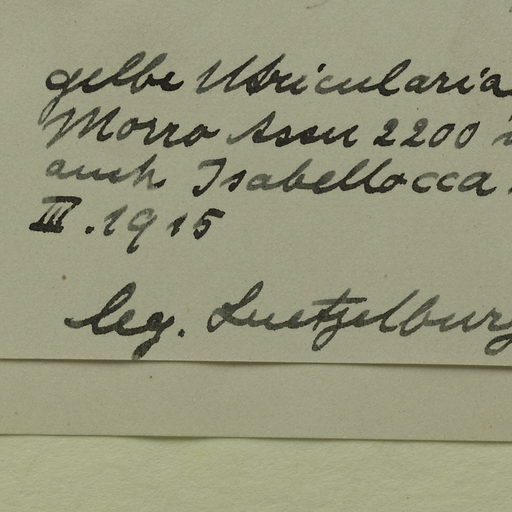 gelbe Utricularia
Morro Assu 2200
auch Isabellocca
III. 1915
leg. Luetzelburg